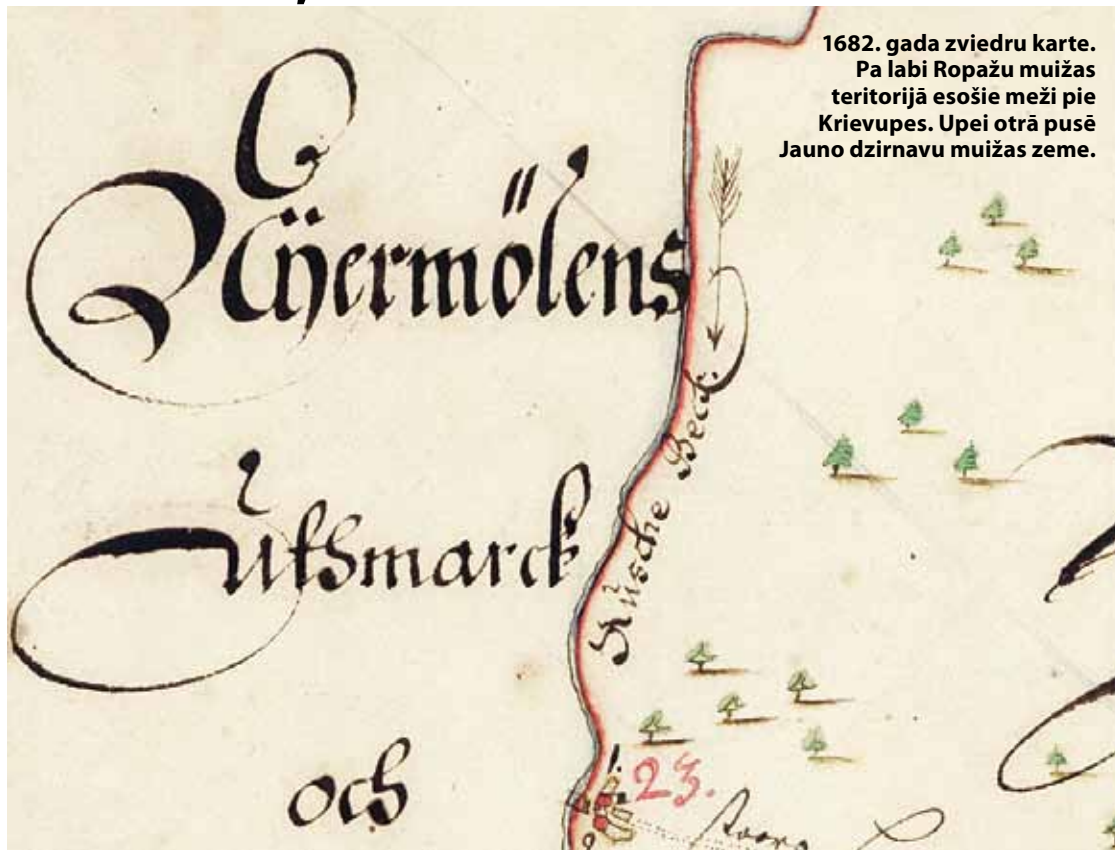 1682. gada zviedru karte.
Pa labi Ropažu muižas
teritorijā esošie meži pie
Krievupes. Upei otrā pusē
Jauno dzirnavu muižas zeme.
Nÿermölens
Rüsche Beck
och
1.
23.